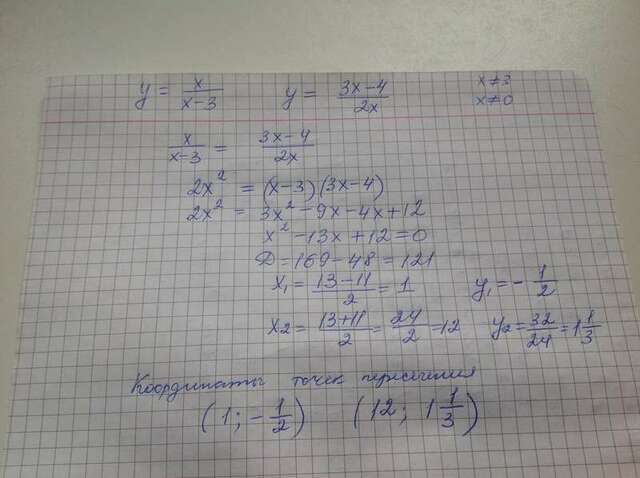 y = x/(x-3)   y = (3x-4)/(2x)   x≠3
x≠0
x/(x-3) = (3x-4)/(2x)
2x² = (x-3)(3x-4)
2x² = 3x² - 9x - 4x + 12
x² - 13x + 12 = 0
D = 169 - 48 = 121
x₁ = (13-11)/2 = 1   y₁ = -1/2
x₂ = (13+11)/2 = 24/2 = 12   y₂ = 32/24 = 1 1/3
Координаты точек пересечения
(1; -1/2)   (12; 1 1/3)